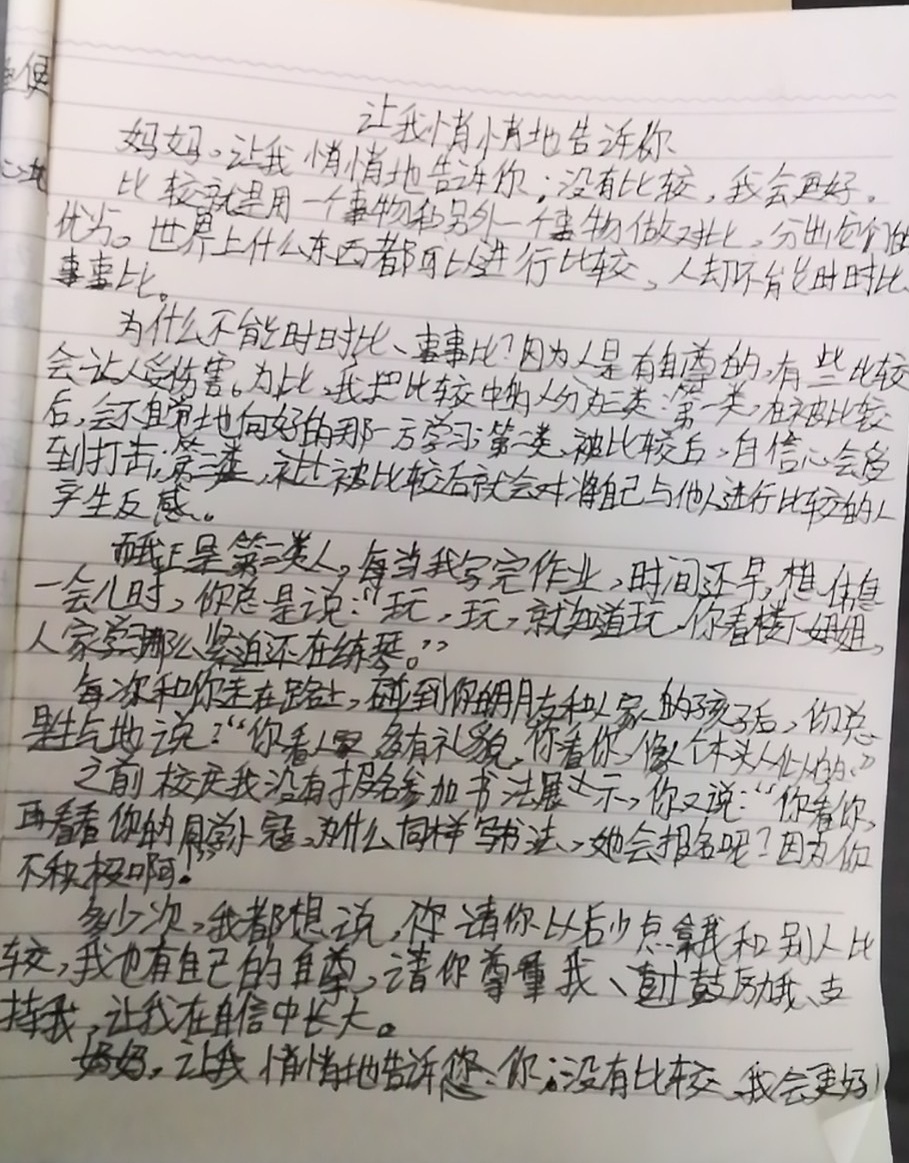 便
心地
让我悄悄地告诉你
妈妈。让我悄悄地告诉你;没有比较,我会更好。
比较就是用一个事物和另外一个事物做对比,分出它们的
优劣。世界上什么东西都可以进行比较,人却不能时时比、
事事比。
为什么不能时时比、事事比?因为人是有自尊的,有些比较
会让人受伤害。为此,我把比较中的人分为三类:第一类,在被比较
后,会不自觉地向好的那一方学习;第二类,被比较后,自信心会受
到打击;第三类,被比较后就会对将自己与他人进行比较的人
产生反感。
而我正是第二类人。每当我写完作业,时间还早,想休息
一会儿时,你总是说:“玩,玩,就知道玩,你看楼下姐姐,
人家学习那么紧迫还在练琴。”
每次和你走在路上,碰到你的朋友和人家的孩子后,你总
是生气地说:“你看人家多有礼貌,你看你,像个木头人似的。”
之前校庆我没有报名参加书法展示,你又说:“你看你,
再看看你的同学卜冠,为什么同样写书法,她会报名呢?因为你
不积极啊!”
多少次,我都想说,请你以后少点拿我和别人比
较,我也有自己的自尊,请你尊重我、鼓励我、支
持我,让我在自信中长大。
妈妈,让我悄悄地告诉你:没有比较,我会更好!